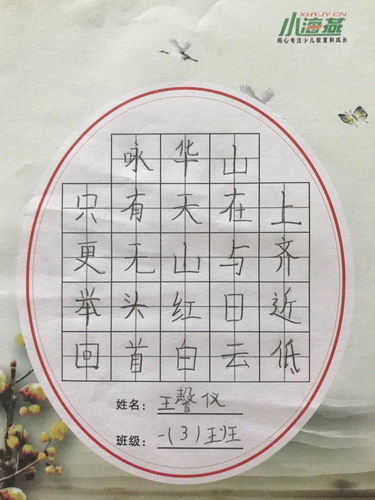 XHYJY.CN
小海燕
用心专注少儿教育和成长
咏华山
只有天在上
更无山与齐
举头红日近
回首白云低
姓名：王馨仪
班级：一（3）班